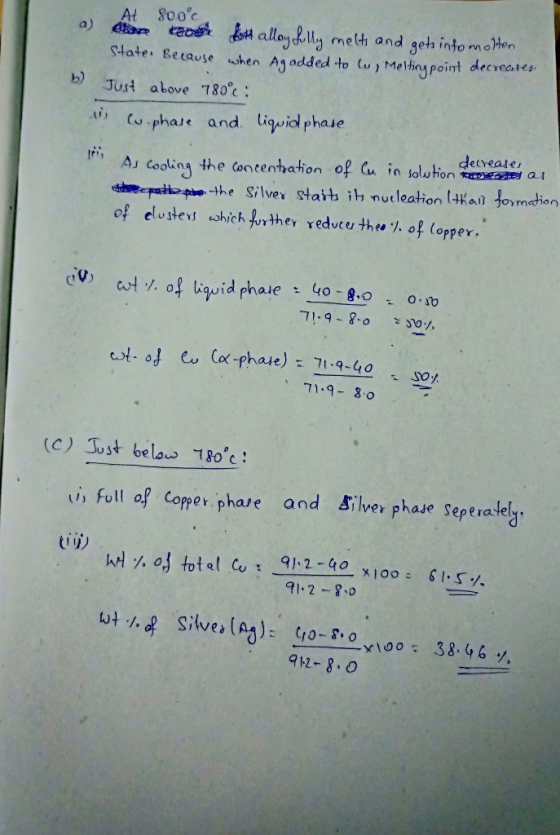 a) At 800°c
alloy fully melts and gets into molten
State. Because when Ag added to Cu, Melting point decreases.
b) Just above 780°c :
(i) Cu-phase and liquid phase
(ii) As cooling the concentration of Cu in solution decreases as
the Silver starts its nucleation (that is formation
of clusters which further reduces the % of Copper.
(iv) wt % of liquid phase = 40 - 8.0 / 71.9 - 8.0 = 0.50
= 50%
wt. of Cu (α-phase) = 71.9-40 / 71.9 - 8.0 = 50%
(C) Just below 780°c :
(i) Full of Copper phase and Silver phase seperately.
(iii)
Wt % of total Cu = 91.2 - 40 / 91.2 - 8.0 x100 = 61.5%
Wt % of Silver (Ag) = 40 - 8.0 / 91.2 - 8.0 x100 = 38.46 %